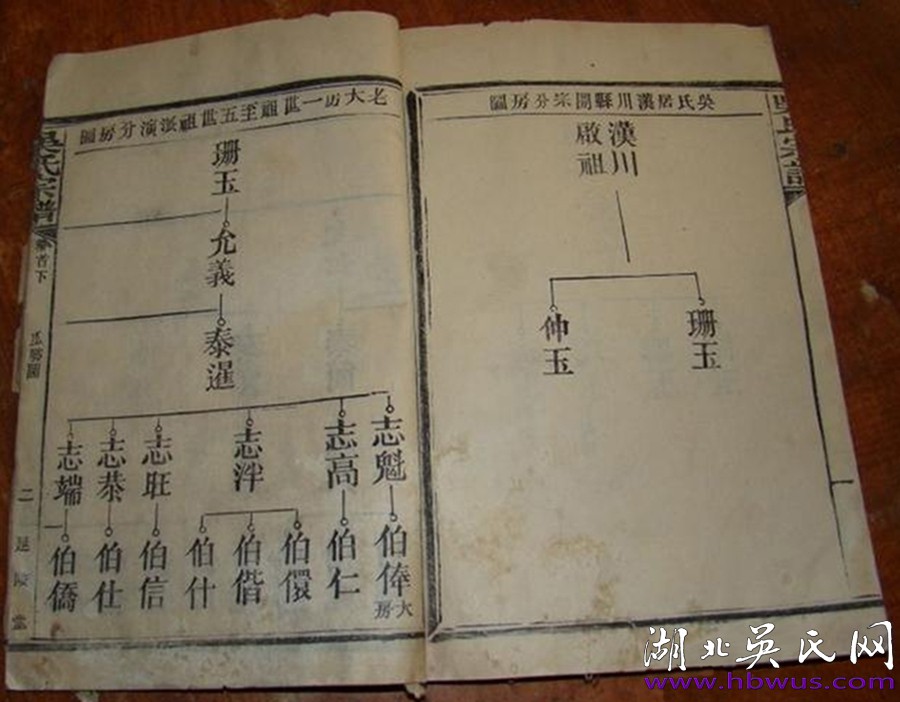 吳氏居漢川縣開宗分房圖
漢川
啟祖
珊玉
仲玉
老大房一世祖至五世祖派演分房圖
珊玉
允義
泰暹
志魁
志高
志泮
志旺
志恭
志端
伯俸
大房
伯仁
伯儇
伯偕
伯什
伯信
伯仕
伯僑
吳氏宗譜
首下
瓜瓞圖
二
延陵堂
一
湖北吴氏网
www.hbwus.com